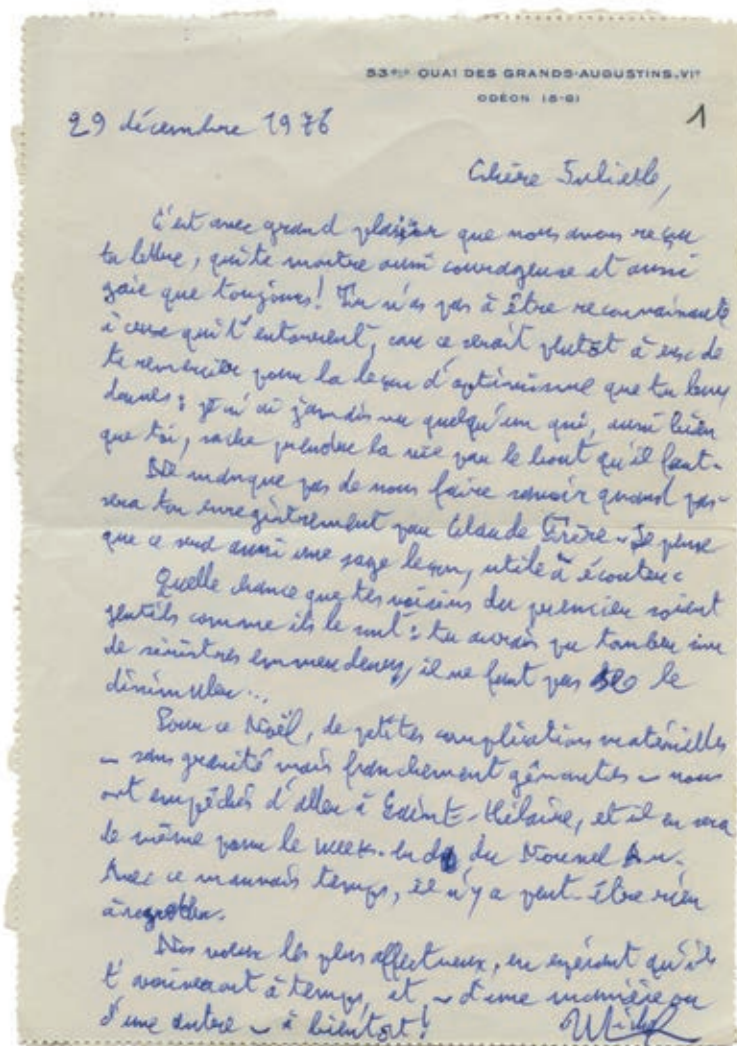 53bis QUAI DES GRANDS-AUGUSTINS. VIe
ODÉON (8-61
1
29 décembre 1976
Chère Juliette,
C'est avec grand plaisir que nous avons reçu
ta lettre, qui te montre aussi courageuse et aussi
gaie que toujours! Tu n'as pas à être reconnaissante
à ceux qui t'entourent, car ce serait plutôt à eux de
te remercier pour la leçon d'optimisme que tu leur
donnes: je n'ai jamais vu quelqu'un qui, aussi bien
que toi, sache prendre la vie par le bout qu'il faut.
Ne manque pas de nous faire savoir quand pas-
sera ton enregistrement par Claude Frère. Je pense
que ce sera aussi une sage leçon, utile à écouter.
Quelle chance que tes voisins du premier soient
gentils comme ils le sont: tu aurais pu tomber sur
de sinistres emmerdeurs, il ne faut pas se le
dissimuler...
Pour ce Noël, de petites complications matérielles
– sans gravité mais franchement gênantes – nous
ont empêchés d'aller à Saint-Hilaire, et il en sera
de même pour le week-end du Nouvel An.
Avec ce mauvais temps, il n'y a peut-être rien
à regretter.
Nos vœux les plus affectueux, en espérant qu'ils
t'arriveront à temps, et – d'une manière ou
d'une autre – à bientôt!